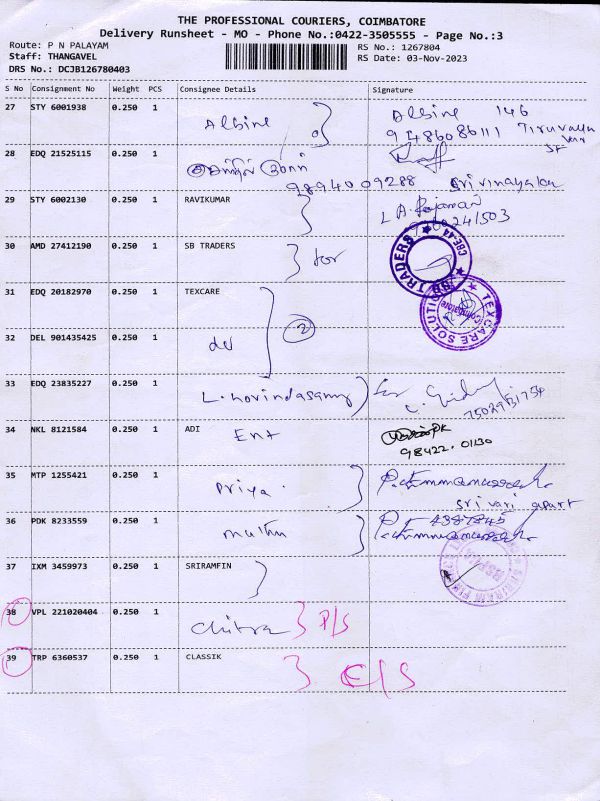 THE PROFESSIONAL COURIERS, COIMBATORE
Delivery Runsheet - MO - Phone No.:0422-3505555 - Page No.:3
Route: P N PALAYAM
Staff: THANGAVEL
DRS No.: DCJB126780403
RS No.: 1267804
RS Date: 03-Nov-2023
S No Consignment No Weight PCS Consignee Details Signature
27 STY 6001938 0.250 1 Albine Albine 146
9486086111
28 EDQ 21525115 0.250 1
9894009288 Sri vinayaka
29 STY 6002130 0.250 1 RAVIKUMAR L A. Rajamani
30 AMD 27412190 0.250 1 SB TRADERS for
SB TRADERS CBE-44
31 EDQ 20182970 0.250 1 TEXCARE 2
TEXCARE SOLUTIONS Coimbatore
32 DEL 901435425 0.250 1 do
33 EDQ 23835227 0.250 1 L. Govindasamy for
34 NKL 8121584 0.250 1 ADI
Ent
98422 01130
35 MTP 1255421 0.250 1 Priya
Sri vari apart
36 PDK 8233559 0.250 1 Muthu 4387845
37 IXM 3459973 0.250 1 SRIRAMFIN
38 VPL 221020404 0.250 1 Chitra P/S
39 TRP 6360537 0.250 1 CLASSIK C/S